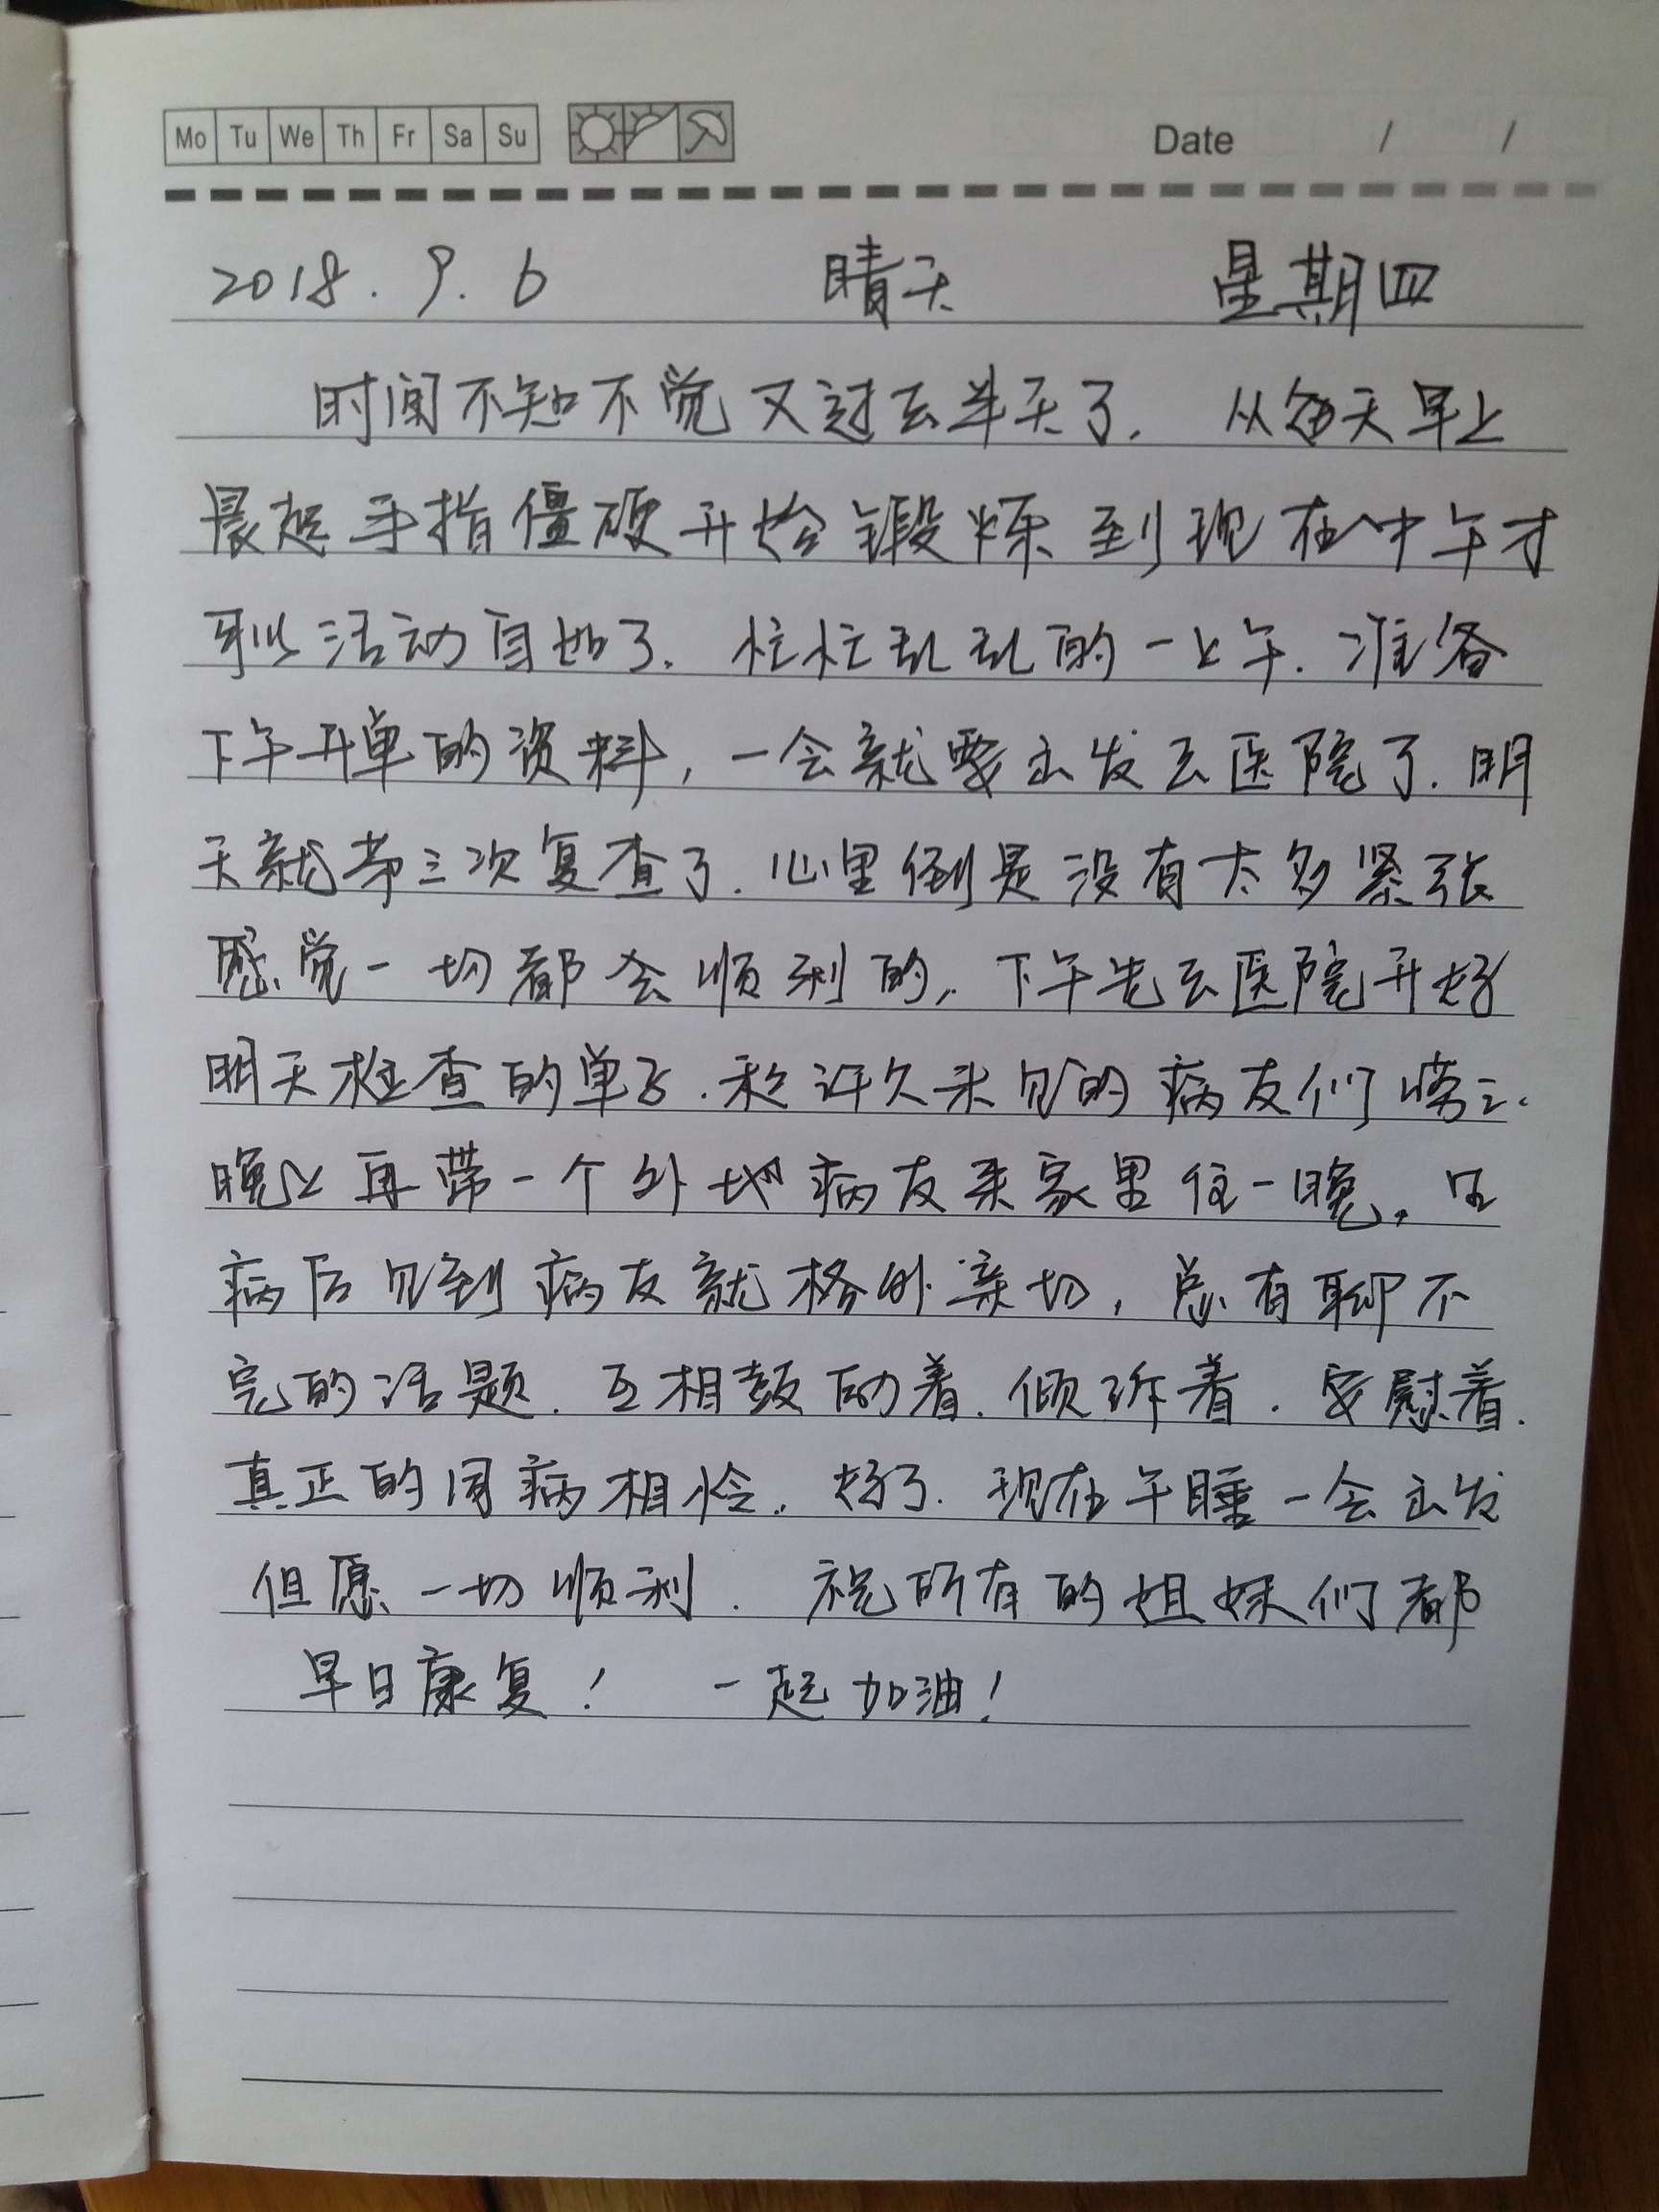 Mo Tu We Th Fr Sa Su Date / /
2018.9.6 晴天 星期四
时间不知不觉又过去半天了. 从每天早上
晨起手指僵硬开始锻炼到现在中午才
可以活动自如了. 忙忙乱乱的一上午. 准备
下午开单的资料,一会就要出发去医院了.明
天就第三次复查了.心里倒是没有太多紧张
感觉一切都会顺利的,.下午先去医院开好
明天检查的单子.和许久未见的病友们唠云.
晚上再带一个外地病友来家里住一晚,.生
病后见到病友就格外亲切,总有聊不
完的话题.互相鼓励着.倾诉着.安慰着.
真正的同病相怜. 好了.现在午睡一会出发
但愿一切顺利. 祝所有的姐妹们都
早日康复! 一起加油!